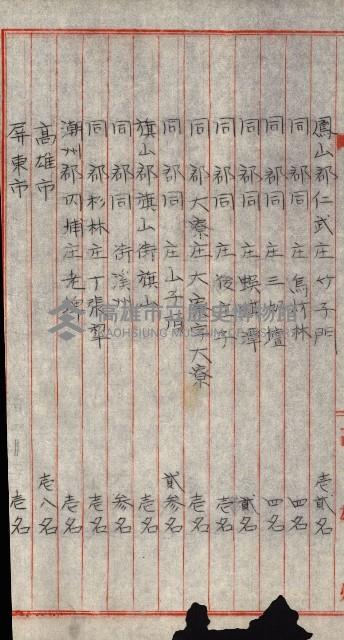 鳳山郡仁武庄竹子門 壱貳名
同 郡同 庄烏材林 四名
同 郡同 庄三奶壇 四名
同 郡同 庄 潭 貳名
同 郡同 庄後庄子 壱名
同 郡大寮庄大寮字大寮 壱名
同 郡同 庄山子頂 貳参名
旗山郡旗山街旗山 壱名
同 郡同 街溪洲 参名
同 郡杉林庄丁張犂 壱名
潮州郡内埔庄老 壱名
高雄市 壱八名
屏東市 壱名
高雄市立歷史博物館
KAOHSIUNG MUSEUM OF HISTORY